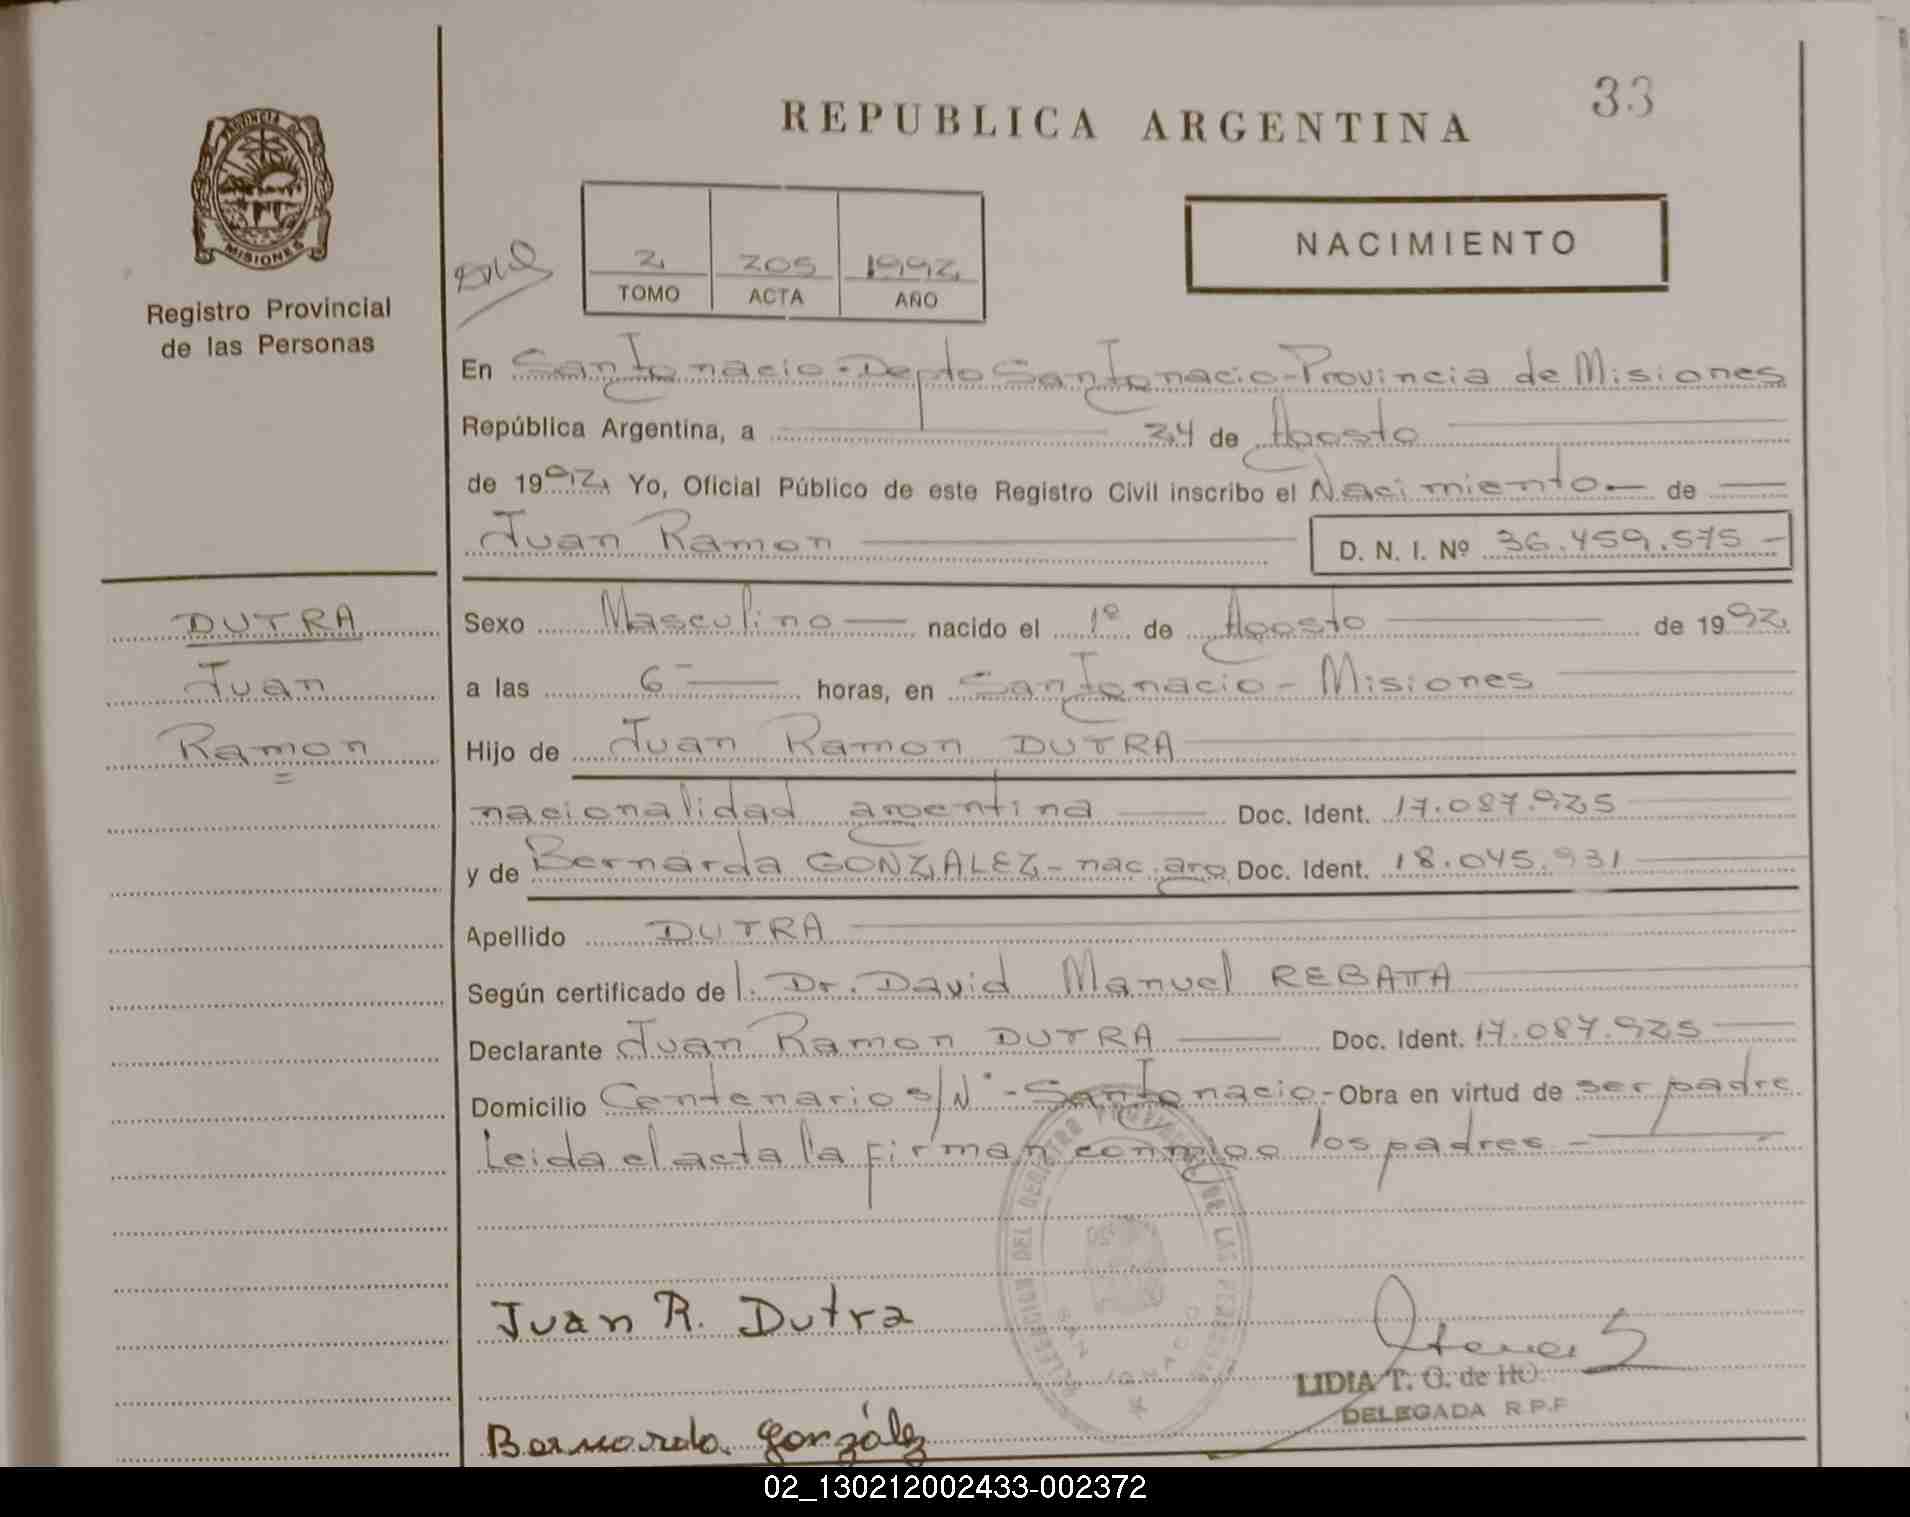 REPUBLICA ARGENTINA
33
PROVINCIA DE
MISIONES
Registro Provincial
de las Personas
2 205 1992
TOMO ACTA AÑO
NACIMIENTO
En San Ignacio - Depto San Ignacio - Provincia de Misiones
República Argentina, a 24 de Agosto
de 1992 Yo, Oficial Público de este Registro Civil inscribo el Nacimiento de
Juan Ramon D. N. I. Nº 36.459.575 -
DUTRA
Juan
Ramon
Sexo Masculino nacido el 1º de Agosto de 1992
a las 6 horas, en San Ignacio - Misiones
Hijo de Juan Ramon DUTRA
nacionalidad argentina Doc. Ident. 17.087.925
y de Bernarda GONZALEZ - nac. arg. Doc. Ident. 18.045.931
Apellido DUTRA
Según certificado del Dr. David Manuel REBATTA
Declarante Juan Ramon DUTRA Doc. Ident. 17.087.925
Domicilio Centenario s/Nº - San Ignacio - Obra en virtud de ser padre
Leida el acta la firman conmigo los padres -
DELEGACION DEL REGISTRO PROVINCIAL DE LAS PERSONAS
SAN IGNACIO
Juan R. Dutra
LIDIA T. O. de
DELEGADA R.P.P
Bernarda gonzález
02_130212002433-002372